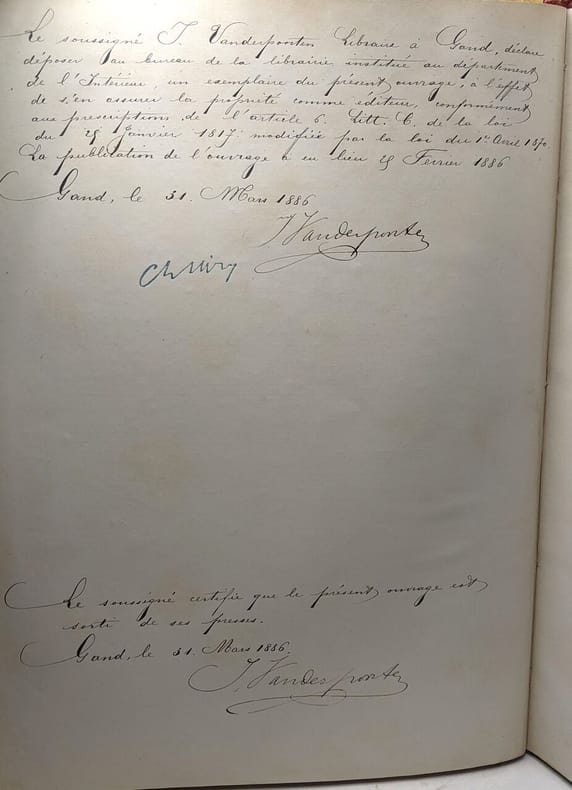 Le soussigné I. Vanderpoorten Libraire à Gand, déclare
déposer au bureau de la librairie institué au département
de l'Intérieur, un exemplaire du présent ouvrage, à l'effet
de s'en assurer la propriété comme éditeur, conformément
aux prescriptions de l'article 6. Litt. C. de la loi
du 25 Janvier 1817 modifiée par la loi du 1er Avril 1870.
La publication de l'ouvrage a eu lieu 25 Février 1886
Gand, le 31. Mars 1886
I. Vanderpoorten
Le soussigné certifie que le présent ouvrage est
sorti de ses presses.
Gand, le 31. Mars 1886.
I. Vanderpoorten